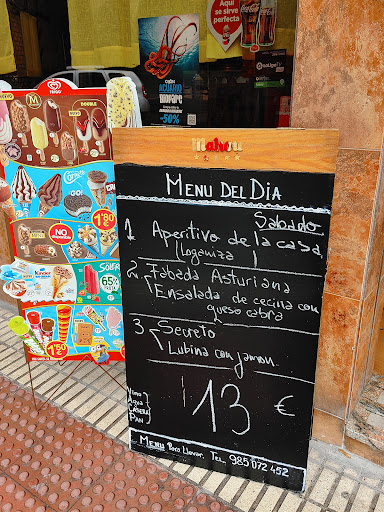 Aquí
se sirve
perfecta
con
ACUARIO
BIOPARC
-50%
FRIGO
DOUBLE
GO!
1'80
NO
65%
Kinder
1'50
Mahou
MENU DEL DIA
Sabado
1 Aperitivo de la casa
(Loganiza)
2 Fabada Asturiana
Ensalada de cecina con
queso cabra
3 Secreto
Lubina con jamon
13 €
Vino
Agua
Casera
Pan
MENU Para Llevar. Tel. 985 072 452